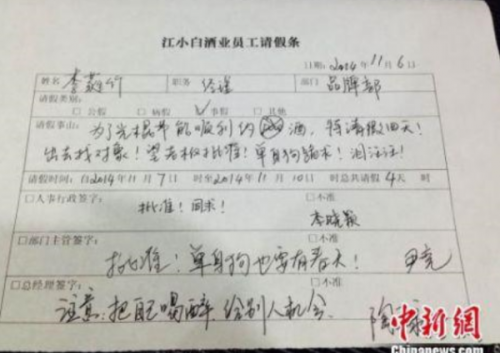 江小白酒业员工请假条
日期：2014年11月6日
姓名 李 竹 职务 经理 部门 品牌部
请假类别：
□公假 □病假 ☑事假 □其他
请假事由：为了光棍节能顺利约 酒，特请假四天！
出去找对象！望老板批准！单身狗请求！泪汪汪！
请假时间：自2014年11月7日 时至2014年11月10日 时总共请假4天 时
□人事行政签字： □不准
批准！同求！ 李晓颖
□部门主管签字： □不准
批准！单身狗也要有春天！ 尹亮
□总经理签字： □不准
注意：把自己喝醉，给别人机会。 陶
中新网
Chinanews.com